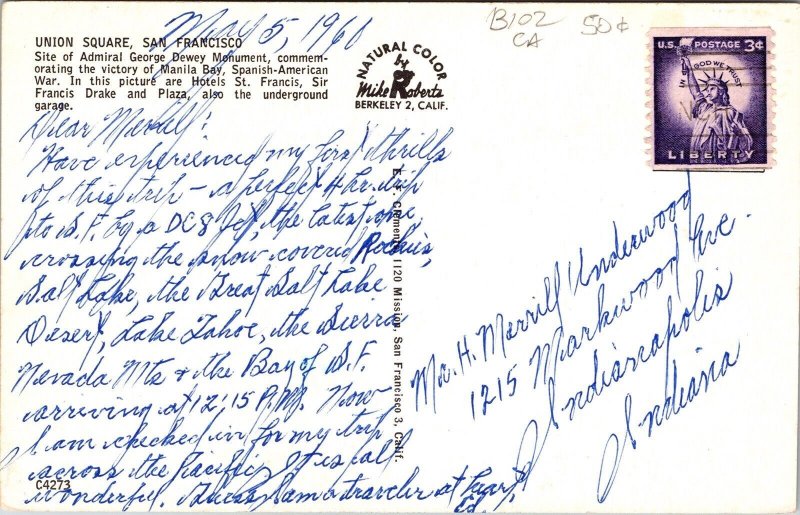 May 5, 1960
UNION SQUARE, SAN FRANCISCO
Site of Admiral George Dewey Monument, commem-
orating the victory of Manila Bay, Spanish-American
War. In this picture are Hotels St. Francis, Sir
Francis Drake and Plaza, also the underground
garage.
NATURAL COLOR
by
Mike Roberts
BERKELEY 2, CALIF.
B102
CA
50¢
U.S. POSTAGE 3¢
IN GOD WE TRUST
LIBERTY
Dear Merrill:
Have experienced my first thrills
of this trip - a perfect 4 hr. trip
to S.F. by a DC8 Jet, the latest one,
crossing the snow-covered Rockies,
Salt Lake, the Great Salt Lake
Desert, Lake Tahoe, the Sierra
Nevada Mts & the Bay of S.F.
arriving at 12,15 P.M. Now
I am checked in for my trip
across the Pacific. It is all
wonderful. Guess I am a traveler at heart,
Ed.
C4273
E. F. Clements, 1120 Mission, San Francisco 3, Calif.
Mr. H. Merrill Underwood
1215 Markwood Ave.
Indianapolis
Indiana